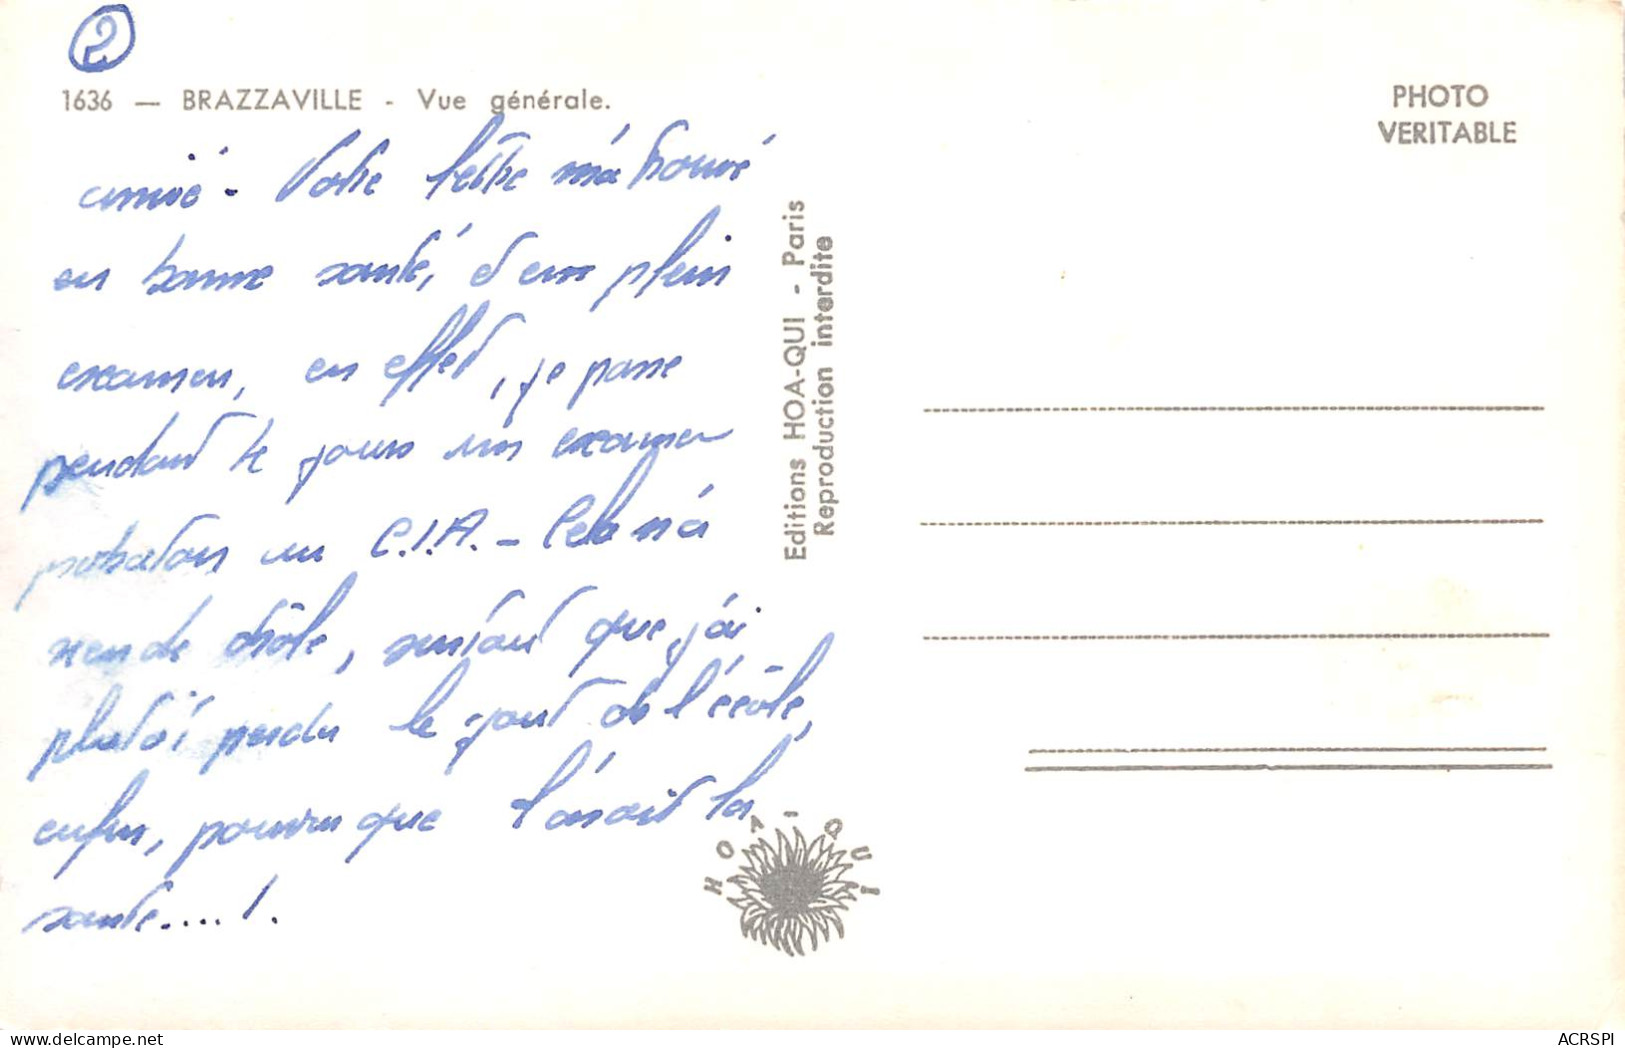 2
1636 — BRAZZAVILLE - Vue générale.
PHOTO
VERITABLE
amié - Votre lettre m'a trouvé
en bonne santé, et en plein
examen, en effet, je passe
pendant 4 jours un examen
probatoire au C.I.A. - Cela n'a
rien de drôle, surtout que j'ai
plutôt perdu le goût de l'école,
enfin, pourvu que l'on ait la
santé.... !.
Editions HOA-QUI - Paris
Reproduction interdite
HOA-QUI
ACRSPI